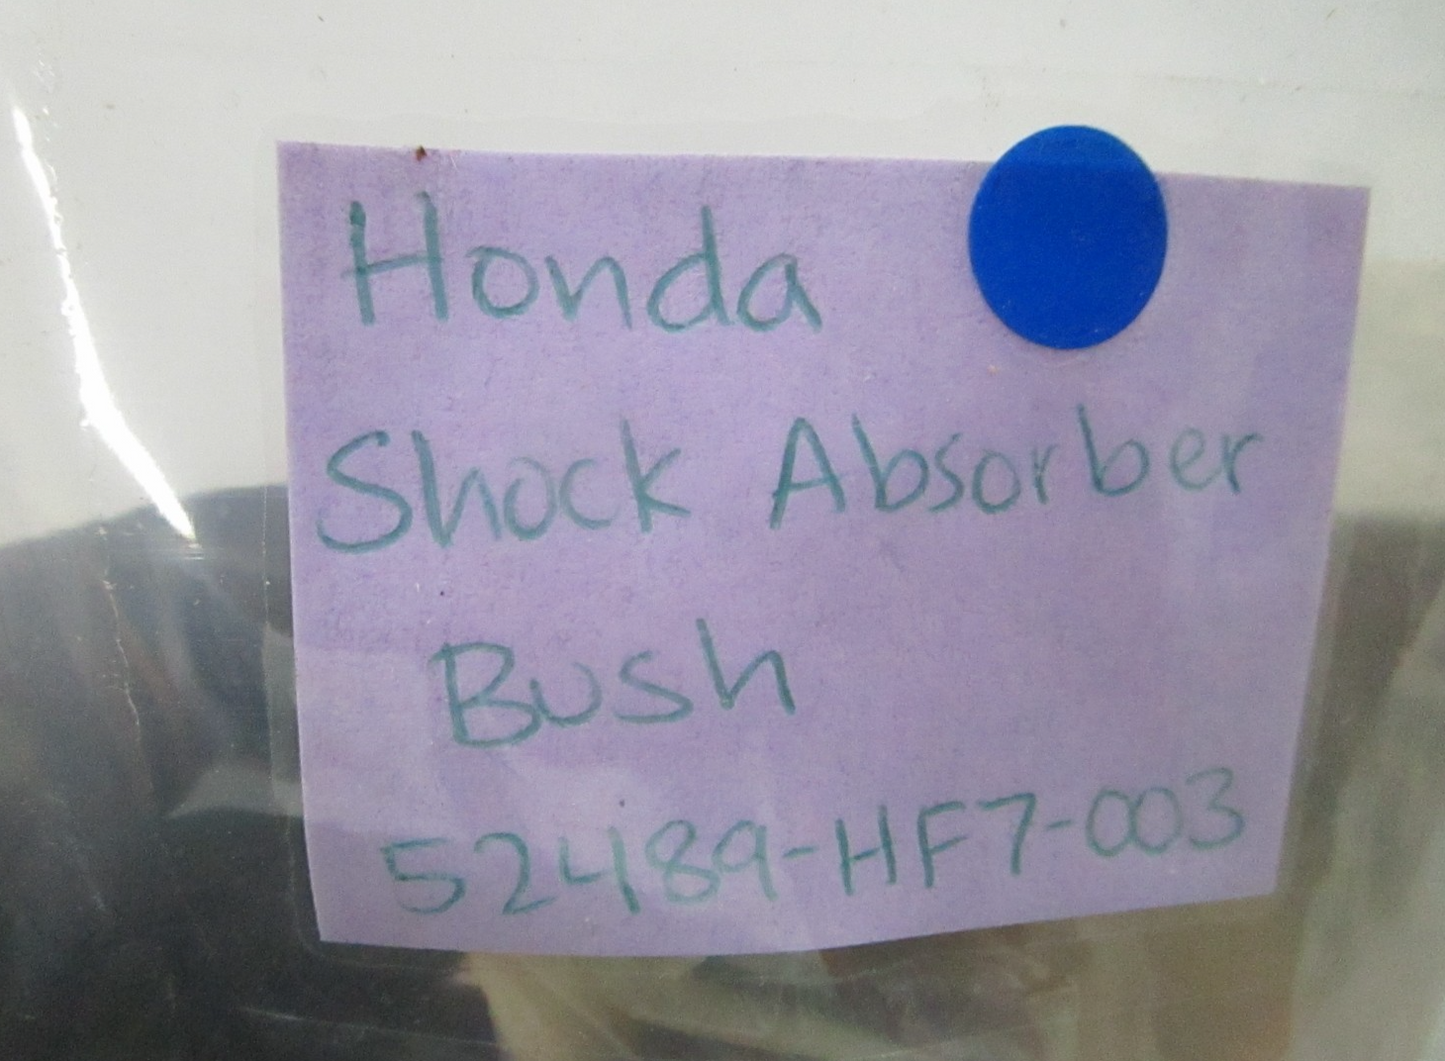 Honda
Shock Absorber
Bush
52489-HF7-003